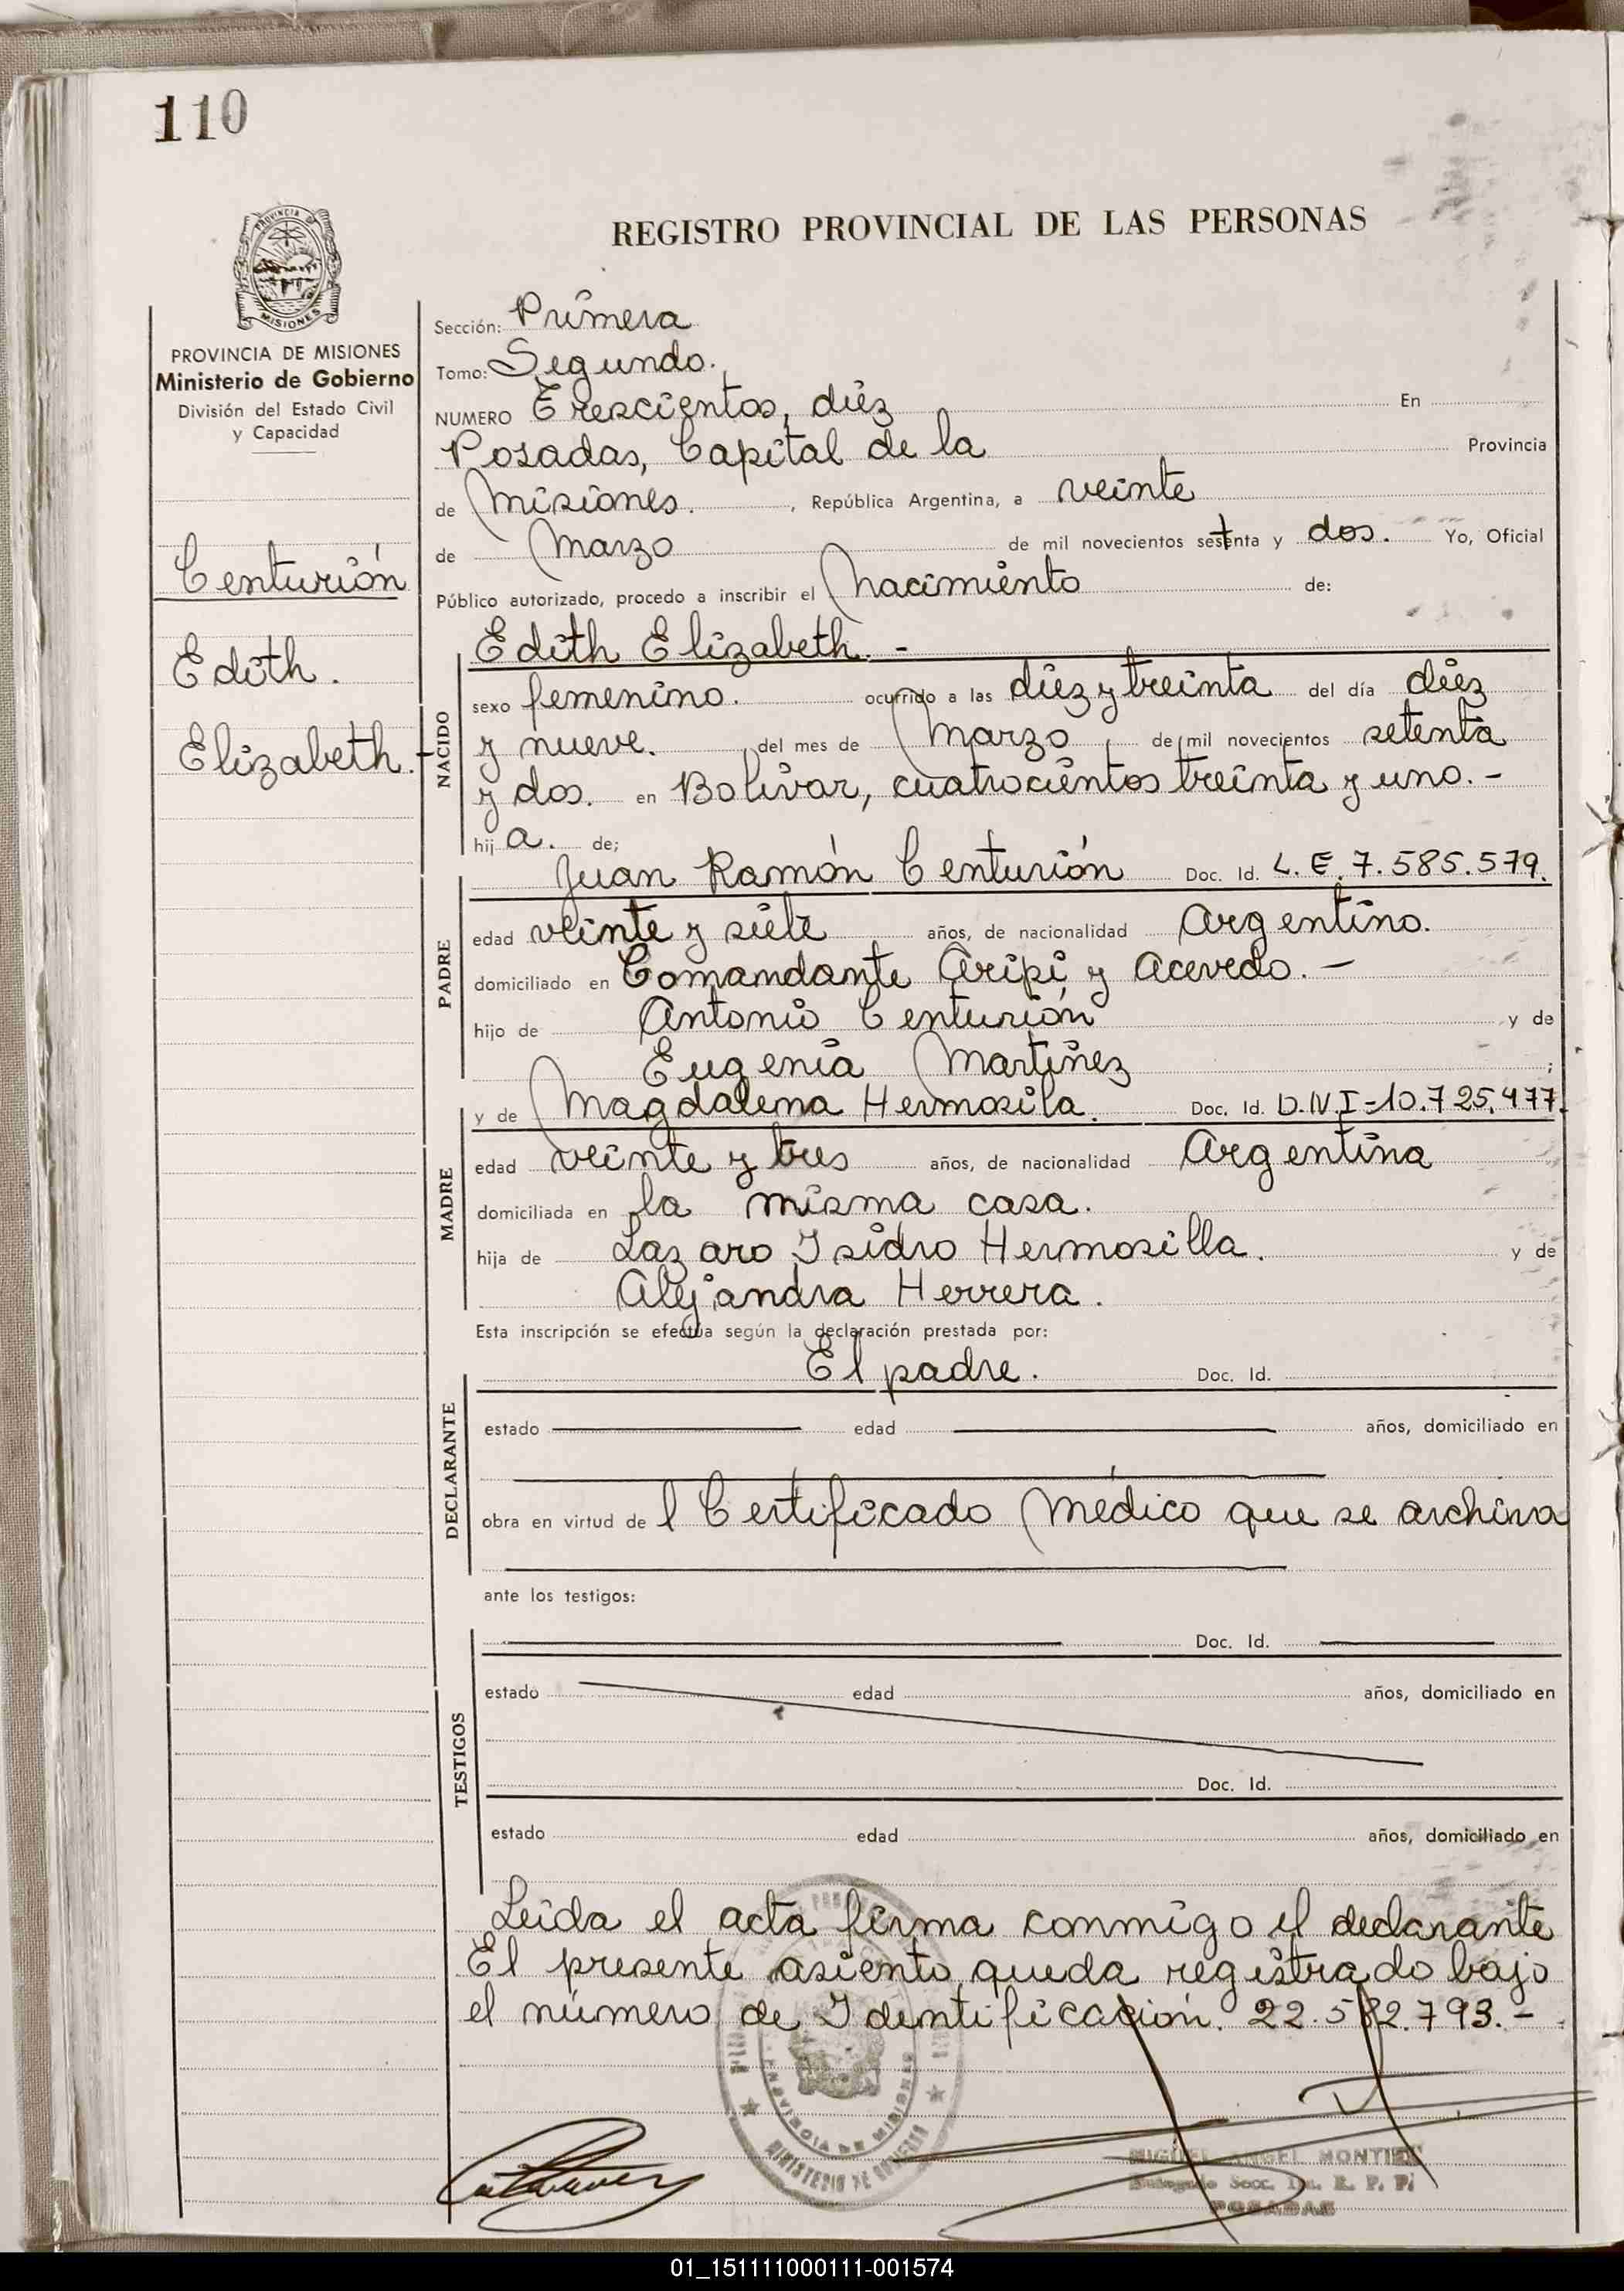 110
PROVINCIA DE
MISIONES
REGISTRO PROVINCIAL DE LAS PERSONAS
PROVINCIA DE MISIONES
Ministerio de Gobierno
División del Estado Civil
y Capacidad
Centurión
Edith.
Elizabeth.-
Sección: Primera
Tomo: Segundo.
NUMERO Trescientos, diez En
Posadas, Capital de la Provincia
de Misiones. , República Argentina, a veinte
de Marzo de mil novecientos setenta y dos. Yo, Oficial
Público autorizado, procedo a inscribir el Nacimiento de:
Edith Elizabeth. -
NACIDO
sexo femenino. ocurrido a las diez y treinta del día diez
y nueve. del mes de Marzo, de mil novecientos setenta
y dos. en Bolívar, cuatrocientos treinta y uno. -
hij a. de;
PADRE
Juan Ramón Centurión Doc. Id. L. E. 7.585.579.
edad veinte y siete años, de nacionalidad Argentino.
domiciliado en Comandante Aripí, y Acevedo. -
hijo de Antonio Centurión y de
Eugenia Martínez ;
MADRE
y de Magdalena Hermosila. Doc. Id. D.N.I-10.725.477.
edad veinte y tres años, de nacionalidad Argentina
domiciliada en la misma casa.
hija de Lazaro Isidro Hermosilla. y de
Alejandra Herrera.
Esta inscripción se efectúa según la declaración prestada por:
DECLARANTE
El padre. Doc. Id.
estado edad años, domiciliado en
obra en virtud de l Certificado Médico que se archiva
ante los testigos:
TESTIGOS
Doc. Id.
estado edad años, domiciliado en
Doc. Id.
estado edad años, domiciliado en
Leida el acta firma conmigo el declarante
El presente asiento, queda registrado bajo
el número de Identificación. 22.582.793.-
PROVINCIA DE MISIONES
MINISTERIO DE GOBIERNO
MIGUEL ANGEL MONTIEL
Delegado Secc. 1a. R. P. P.
POSADAS
01_151111000111-001574